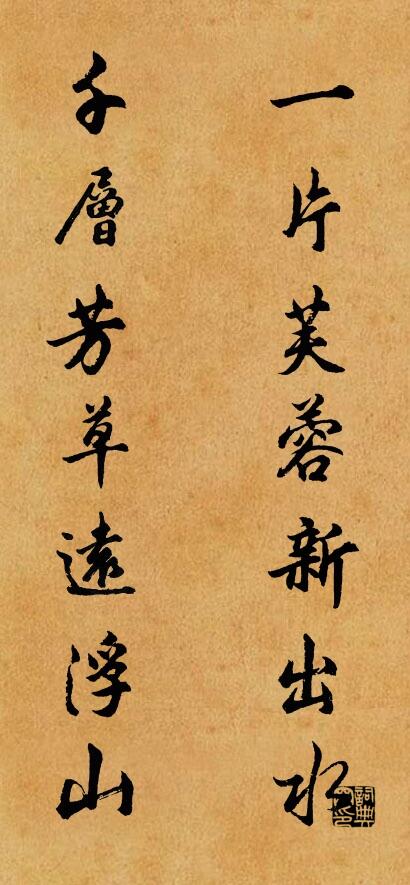 一片芙蓉新出水
千層芳草遠浮山